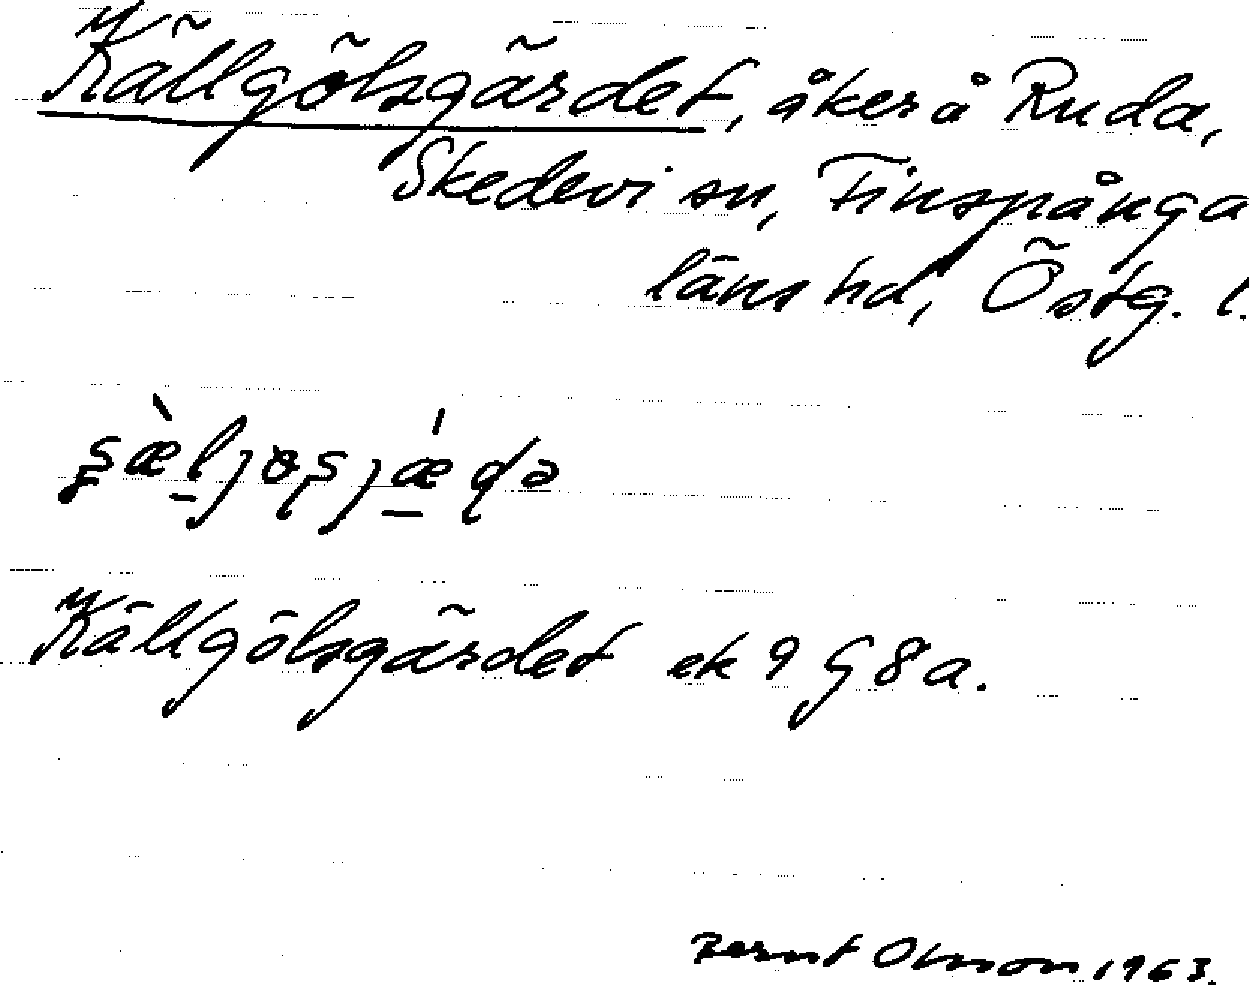 Källgölsgärdet, åker å Ruda,
Skedevi sn, Finspånga
läns hd, Östg. l.
Källgölsgärdet ek 9 G 8 a.
Bernt Olsson 1963.